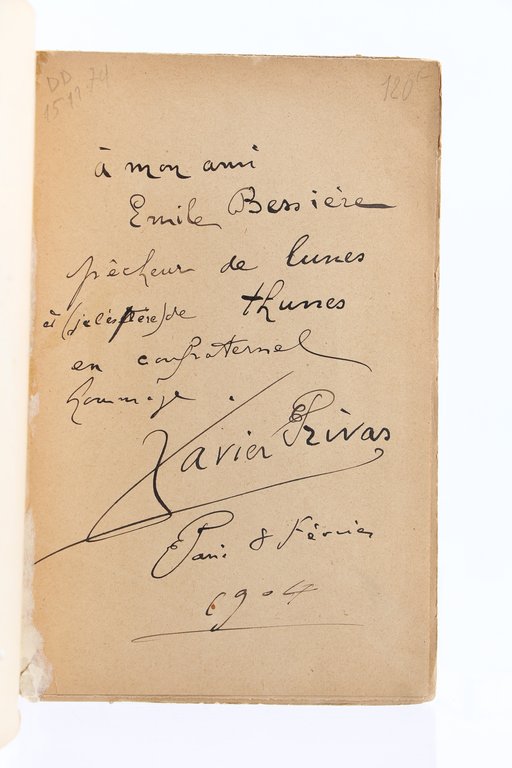 DD
15 11 74
120 F
à mon ami
Emile Bessière
pêcheur de lunes
et (je l'espère) de thunes
en confraternel
hommage.
Xavier Privas
Paris 8 Février
1904